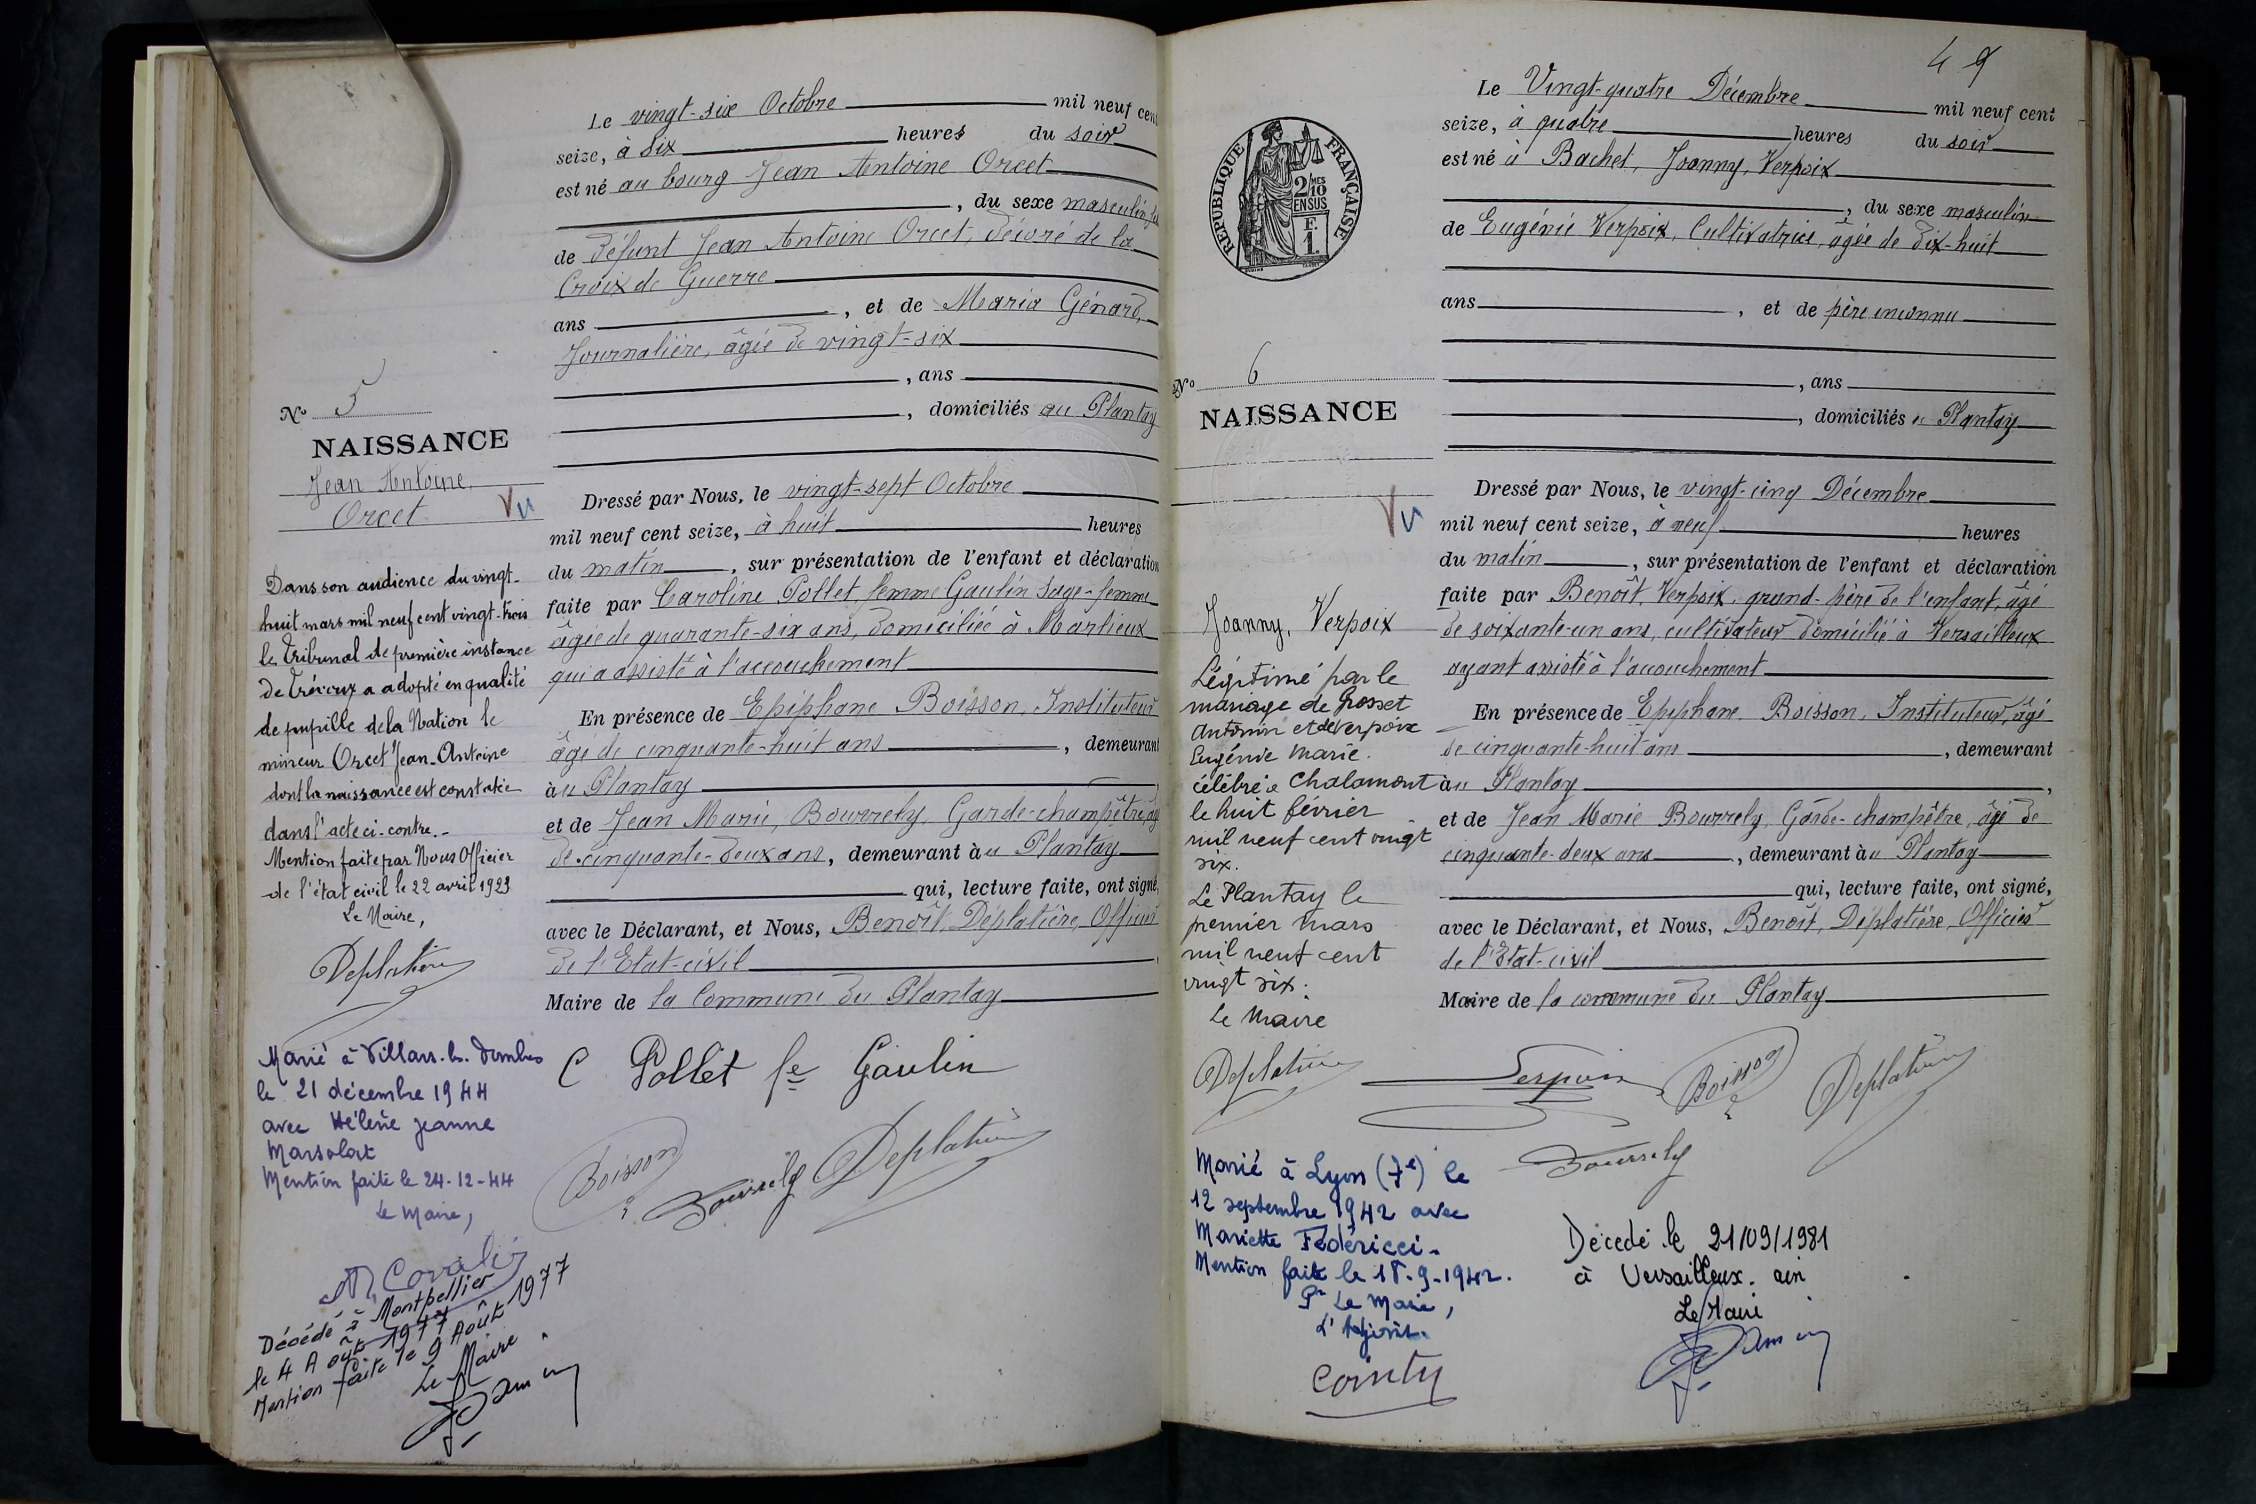 Le vingt-six Octobre mil neuf cent
seize, à six heures du soir
est né au bourg Jean Antoine Orcet
, du sexe masculin, fils
de défunt Jean Antoine Orcet, décoré de la
Croix de Guerre
ans , et de Maria Génard,
Journalière, âgée de vingt-six
, ans
, domiciliés au Plantay
No 5
NAISSANCE
Jean Antoine
Orcet
Vu
Dressé par Nous, le vingt-sept Octobre
mil neuf cent seize, à huit heures
du matin , sur présentation de l'enfant et déclaration
faite par Caroline Pollet, femme Gaulin Sage-femme
âgée de quarante-six ans, domiciliée à Marlieux
qui a assisté à l'accouchement
En présence de Epiphane Boisson, Instituteur
âgé de cinquante-huit ans , demeurant
à u Plantay
et de Jean Marie, Bourrely, Garde-champêtre, âgé
de cinquante-deux ans, demeurant à u Plantay
qui, lecture faite, ont signé,
avec le Déclarant, et Nous, Benoît, Déplatière, Officier
de l'Etat-civil
Maire de la Commune du Plantay
C Pollet fe Gaulin
Boisson
Bourrely
Deplatière
Dans son audience du vingt-
huit mars mil neuf cent vingt-trois
le Tribunal de première instance
de Trévoux a adopté en qualité
de pupille de la Nation le
mineur Orcet Jean-Antoine
dont la naissance est constatée
dans l'acte ci-contre.-
Mention faite par Nous Officier
de l'état civil le 22 avril 1923
Le Maire,
Deplatière
Marié à Villars-les-Dombes
le 21 décembre 1944
avec Hélène Jeanne
Marsolat
Mention faite le 24-12-44
Le Maire,
Décédé à Montpellier
le 4 Août 1977
Mention faite le 9 Août 1977
Le Maire
49
Le Vingt-quatre Décembre mil neuf cent
seize, à quatre heures du soir
est né à Bachet, Joanny, Verpoix
, du sexe masculin
de Eugénie Verpoix, Cultivatrice, âgée de dix-huit
ans , et de père inconnu
, ans
, domiciliés u Plantay
RÉPUBLIQUE FRANÇAISE
2/10 MES
EN SUS
F.
1
No 6
NAISSANCE
Vu
Dressé par Nous, le vingt-cinq Décembre
mil neuf cent seize, à neuf heures
du matin , sur présentation de l'enfant et déclaration
faite par Benoît, Verpoix, grand-père de l'enfant, âgé
de soixante-un ans, cultivateur domicilié à Versailleux
ayant assisté à l'accouchement
En présence de Epiphane Boisson, Instituteur, âgé
de cinquante-huit ans , demeurant
à u Plantay ,
et de Jean Marie Bourrely, Garde-champêtre, âgé de
cinquante-deux ans , demeurant à u Plantay
qui, lecture faite, ont signé,
avec le Déclarant, et Nous, Benoît, Déplatière, Officier
de l'Etat-civil
Maire de la commune du Plantay
Verpoix
Boisson
Deplatière
Bourrely
Joanny, Verpoix
Légitimé par le
mariage de Grosset
Antonin et de Verpoix
Eugénie Marie.
célébré à Chalamont
le huit février
mil neuf cent vingt
six.
Le Plantay le
premier mars
mil neuf cent
vingt six.
Le Maire
Deplatière
Marié à Lyon (7e) le
12 septembre 1942 avec
Mariette Fédéricci.
Mention faite le 18-9-1942.
Pr Le Maire,
L'Adjoint.
Décédé le 21/09/1981
à Versailleux. ain
Le Maire